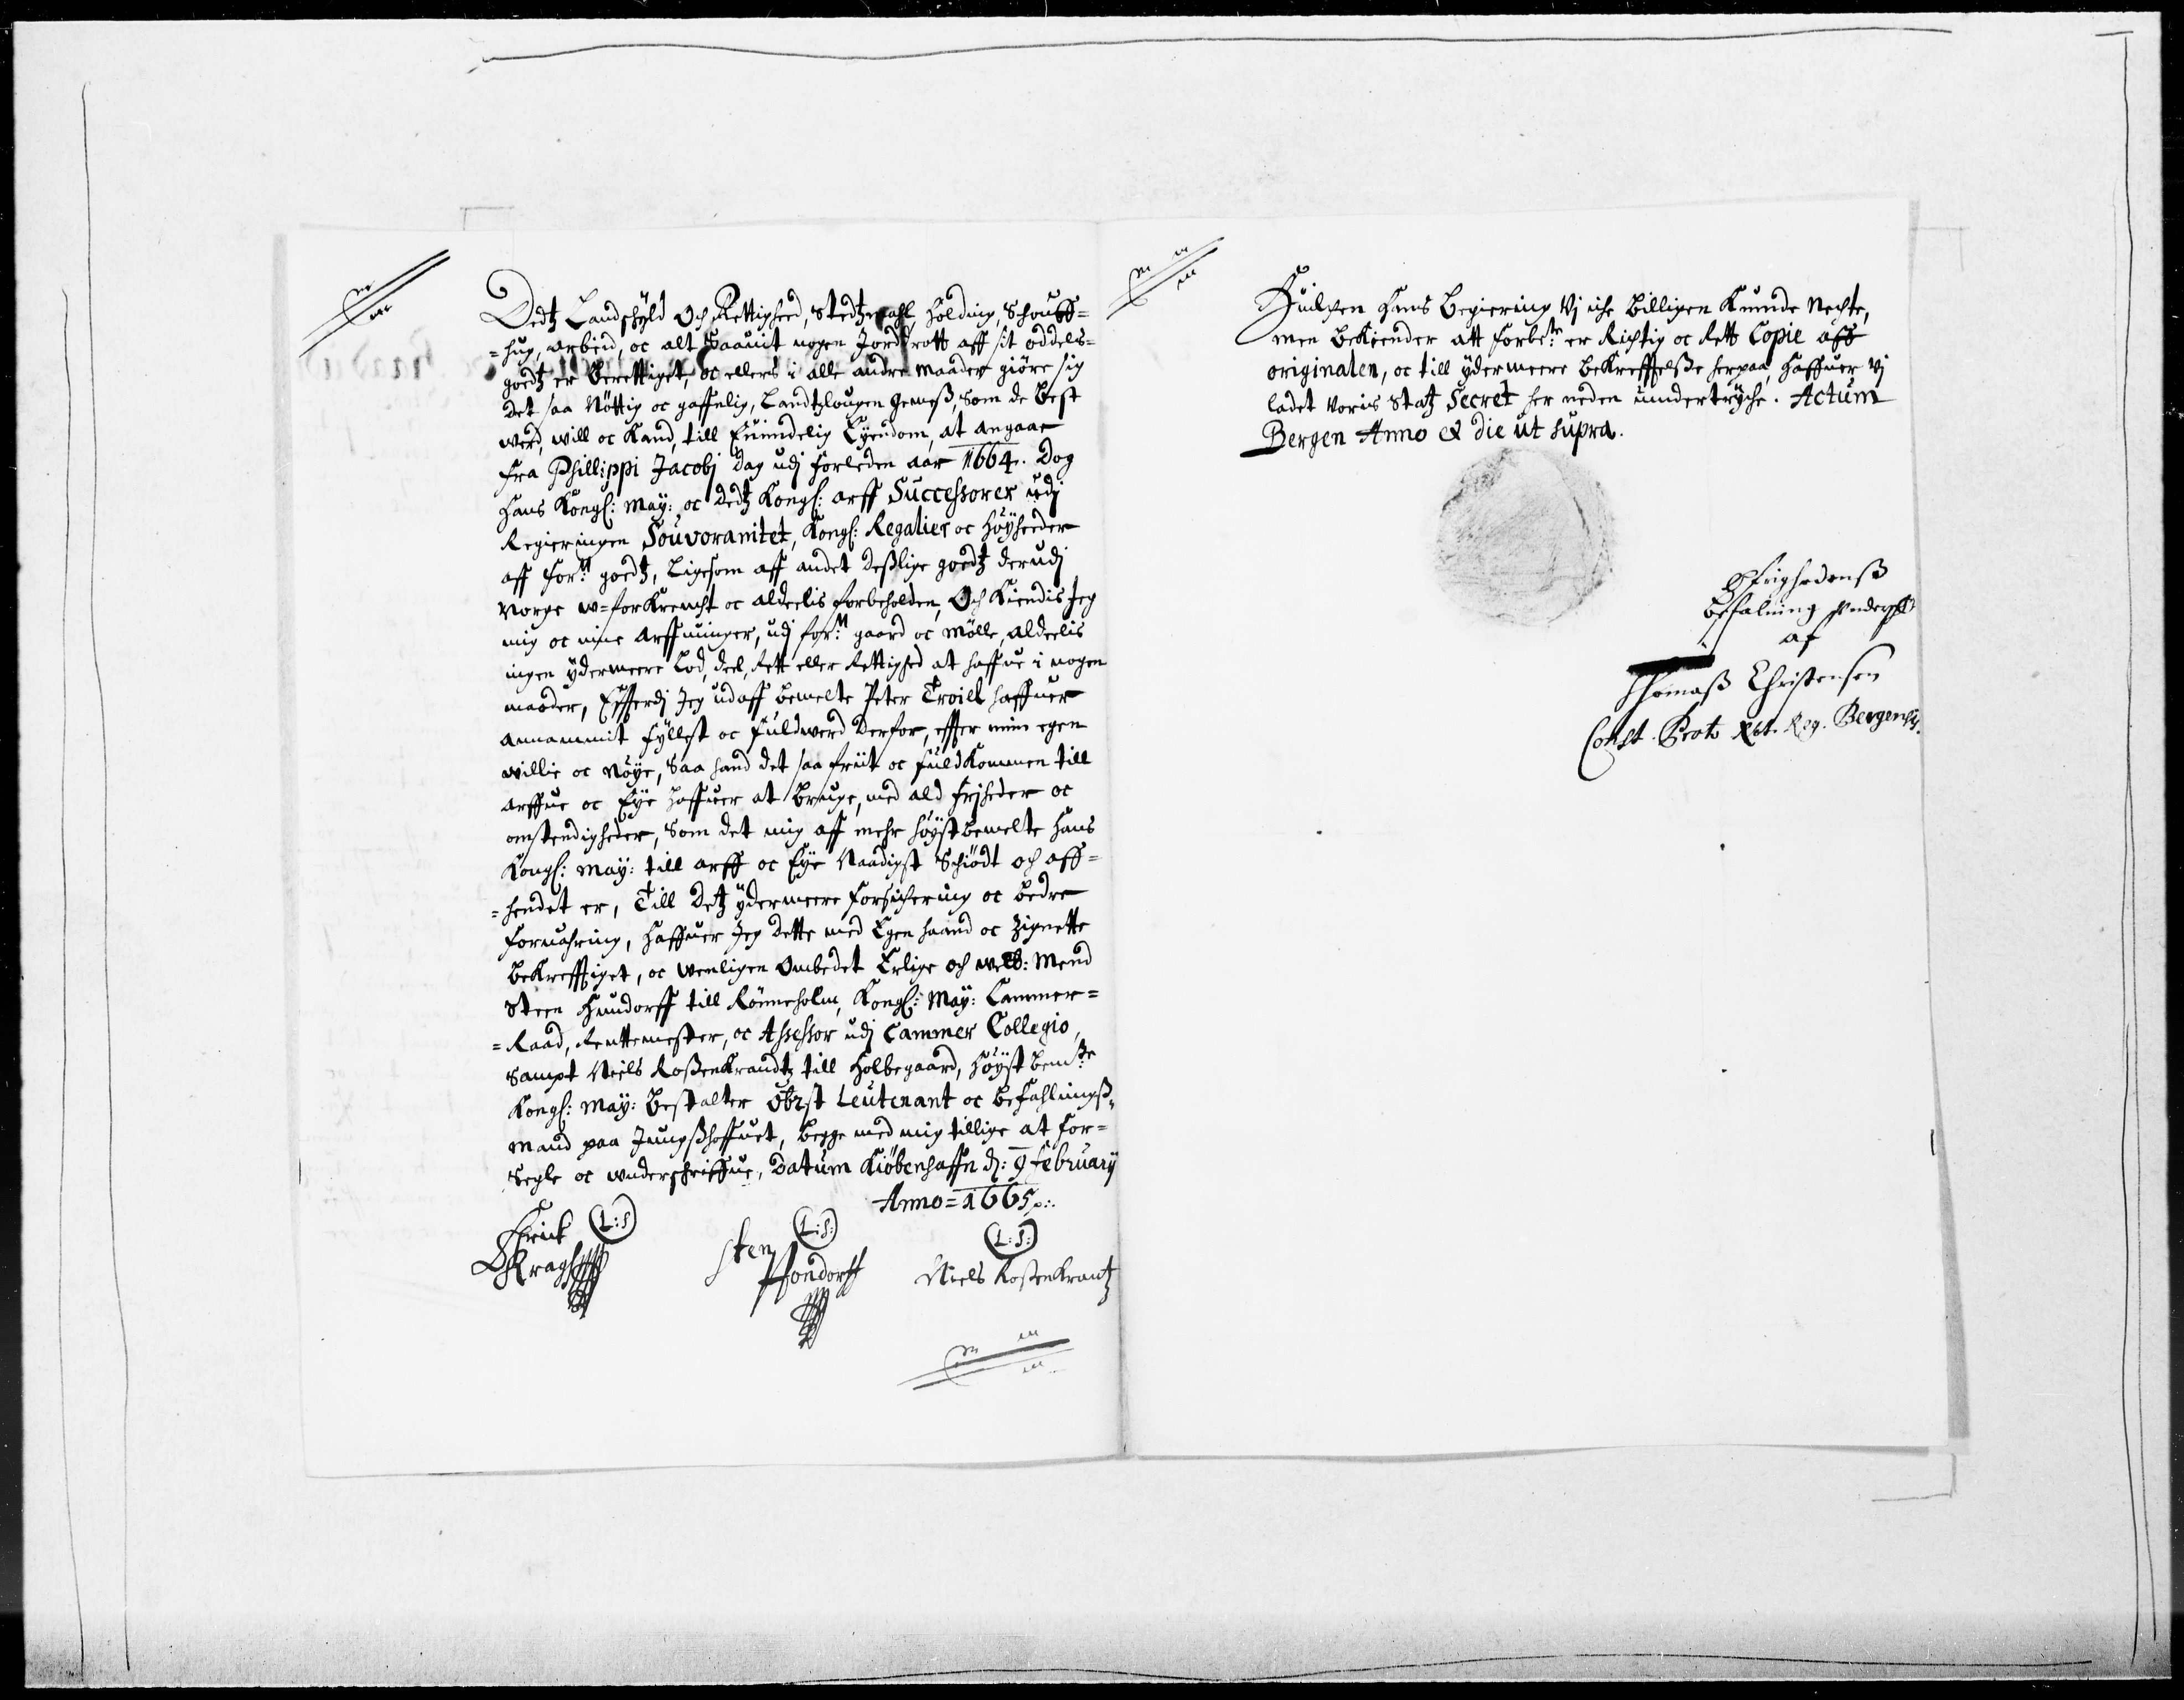 Dedtz Landschyld Och Rettigheed, Stedtzmahl, holding, Schouff=
=hug, arbeid, oc alt Saauit nogen Jorddrott aff sit oddels=
goedtz er berettiget, oc ellers i alle andre maader giøre sig
det saa Nøttig oc gaffnlig, Landtzlougen gemeß, Som de best
weed, will oc Kand, till Euindelig Eyendom, at angaae
fra Phillippi Jacobj dag udj forleden aar 1664. Dog
Hans Kongl: May: oc dedtz Kongl: arff Successorer udj
Regieringen Souvoranitet, Kongl: Regalier oc Høyheeder
aff for.ne goedtz, Ligesom aff andet deßlige goedtz derudj
Norge w=forkrencht oc aldeelis forbeholden, Och Kiendis Jeg
mig oc mine Arffuinger, udj for.ne gaard oc Mølle, aldeelis
ingen ydermeere Lod, deel, Rett eller Rettighed at haffue i nogen
maader, Effterdj Jeg udaff bemelte Peter Troiel haffuer
annammit fyllest oc fuldwerd derfor, effter min egen
willie oc Nøye, Saa hand det saa friit oc fuldkommen till
arffue oc Eye haffuer at bruge, med ald frjheder oc
omstendigheder, Som det mig aff mehr høystbemelte Hans
Kongl: May: till arff oc Eye Naadigst Schiødt och aff=
=hendet er, Till detz ydermeere forsichering oc bedre
foruahring, haffuer Jeg dette med Egen haand oc Zignette
bekrefftiget, oc wenligen Ombedet Erlige och welb: Mend
Steen Hundorff till Rønneholm, Kongl: May: Cammer=
=Raad, Rentemester, oc Assessor udj Cammer Collegio,
Sampt Niels Roßenkrandtz till Holbegaard, Høyst bem.te
Kongl: May: bestalter Obrst Leutenant oc befahlingß,
mand paa Jungßhoffuet, begge med mig tillige at for=
Segle oc underschriffue, Datum Kiøbenhaffn d: 9 february
Anno = 1665 p:.
(L:S) (L:S:) (L:S:)
Erick Kragh Sten Hondorff Niels Roßenkrantz
Huilchen Hans begiering Vj iche billigen Kunde Nechte,
men bekiender att forbe.te er Rigtig oc Rett Copie aff
originalen, oc till ydermeere bekrefftelße herpaa, haffuer Vj
ladet Voris Statz Secret her neden undertryche. Actum
Bergen Anno & die ut supra.
Øfrighedenß
befalning
af
Thomaß Christensen
Const. Proto Not. Reg. Bergensis.